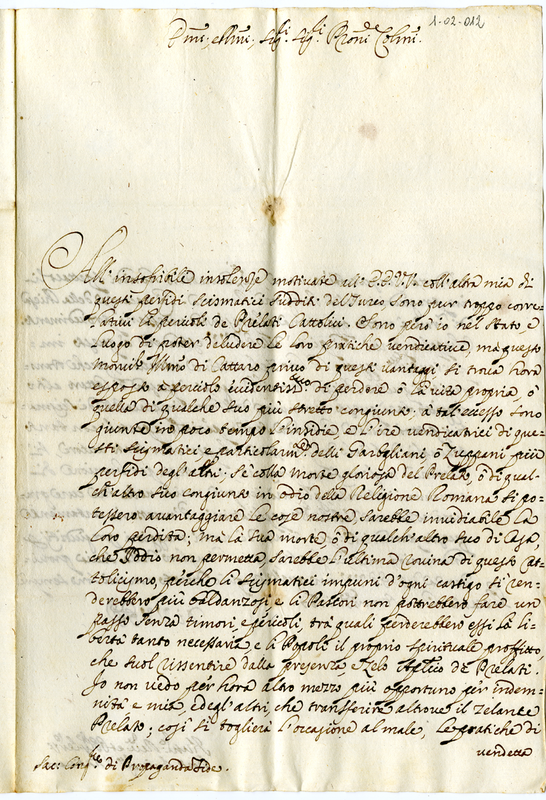 1-02-012
Emi, e Rmi, Sig.ri Sig.ri Proni Colmi.
All'insofribile insolenze motivate all'EE. VV. coll'altra mia di
questi perfidi scismatici sudditi del Turco sono pur troppo corre-
lativi li pericoli de Prelati Cattolici. Sono però io nel stato e
luogo di poter deludere le loro pratiche vendicative, mà questo
Monsig.r Vescovo di Cattaro privo di questi vantaggi si trova hora
esposto à pericolo evidentiss.mo di perdere ò la vita propria, ò
quella di qualche suo più stretto congiunto: à tal eccesso sono
giunte in poco tempo l'insidie, e l'ire vendicatrici di que-
sti scismatici e particolarm.te delli Garbgliani ò Zuppani più
perfidi degl'altri. Se colla morte gloriosa del Prelato, ò di qual-
ch'altro suo congiunto in odio della Religione Romana si po-
tessero avantaggiare le cose nostre, sarebbe invidiabile la
loro perdita; mà la sua morte ò di qualch'altro suo di Casa,
che Iddio non permetta, sarebbe l'ultima rovina di questo Cat-
tolicismo, perche li scismatici impuni d'ogni castigo si ren-
derebbero più baldanzosi, e li Pastori non potrebbero fare un
passo senza timori, e pericoli, trà quali perderebbero essi la li-
bertà tanto necessaria, e li Popoli il proprio spirituale profitto,
che suol risentire dalla presenza, e zelo de Prelati.
Io non vedo per hora altro mezzo più opportuno per indem-
nità e mia, ed egl'altri, che transferire altrove il zelante
Prelato; così si toglierà l'occasione al male, le pratiche di
vendetta
Sac: Cong.ne di Propaganda Fide.